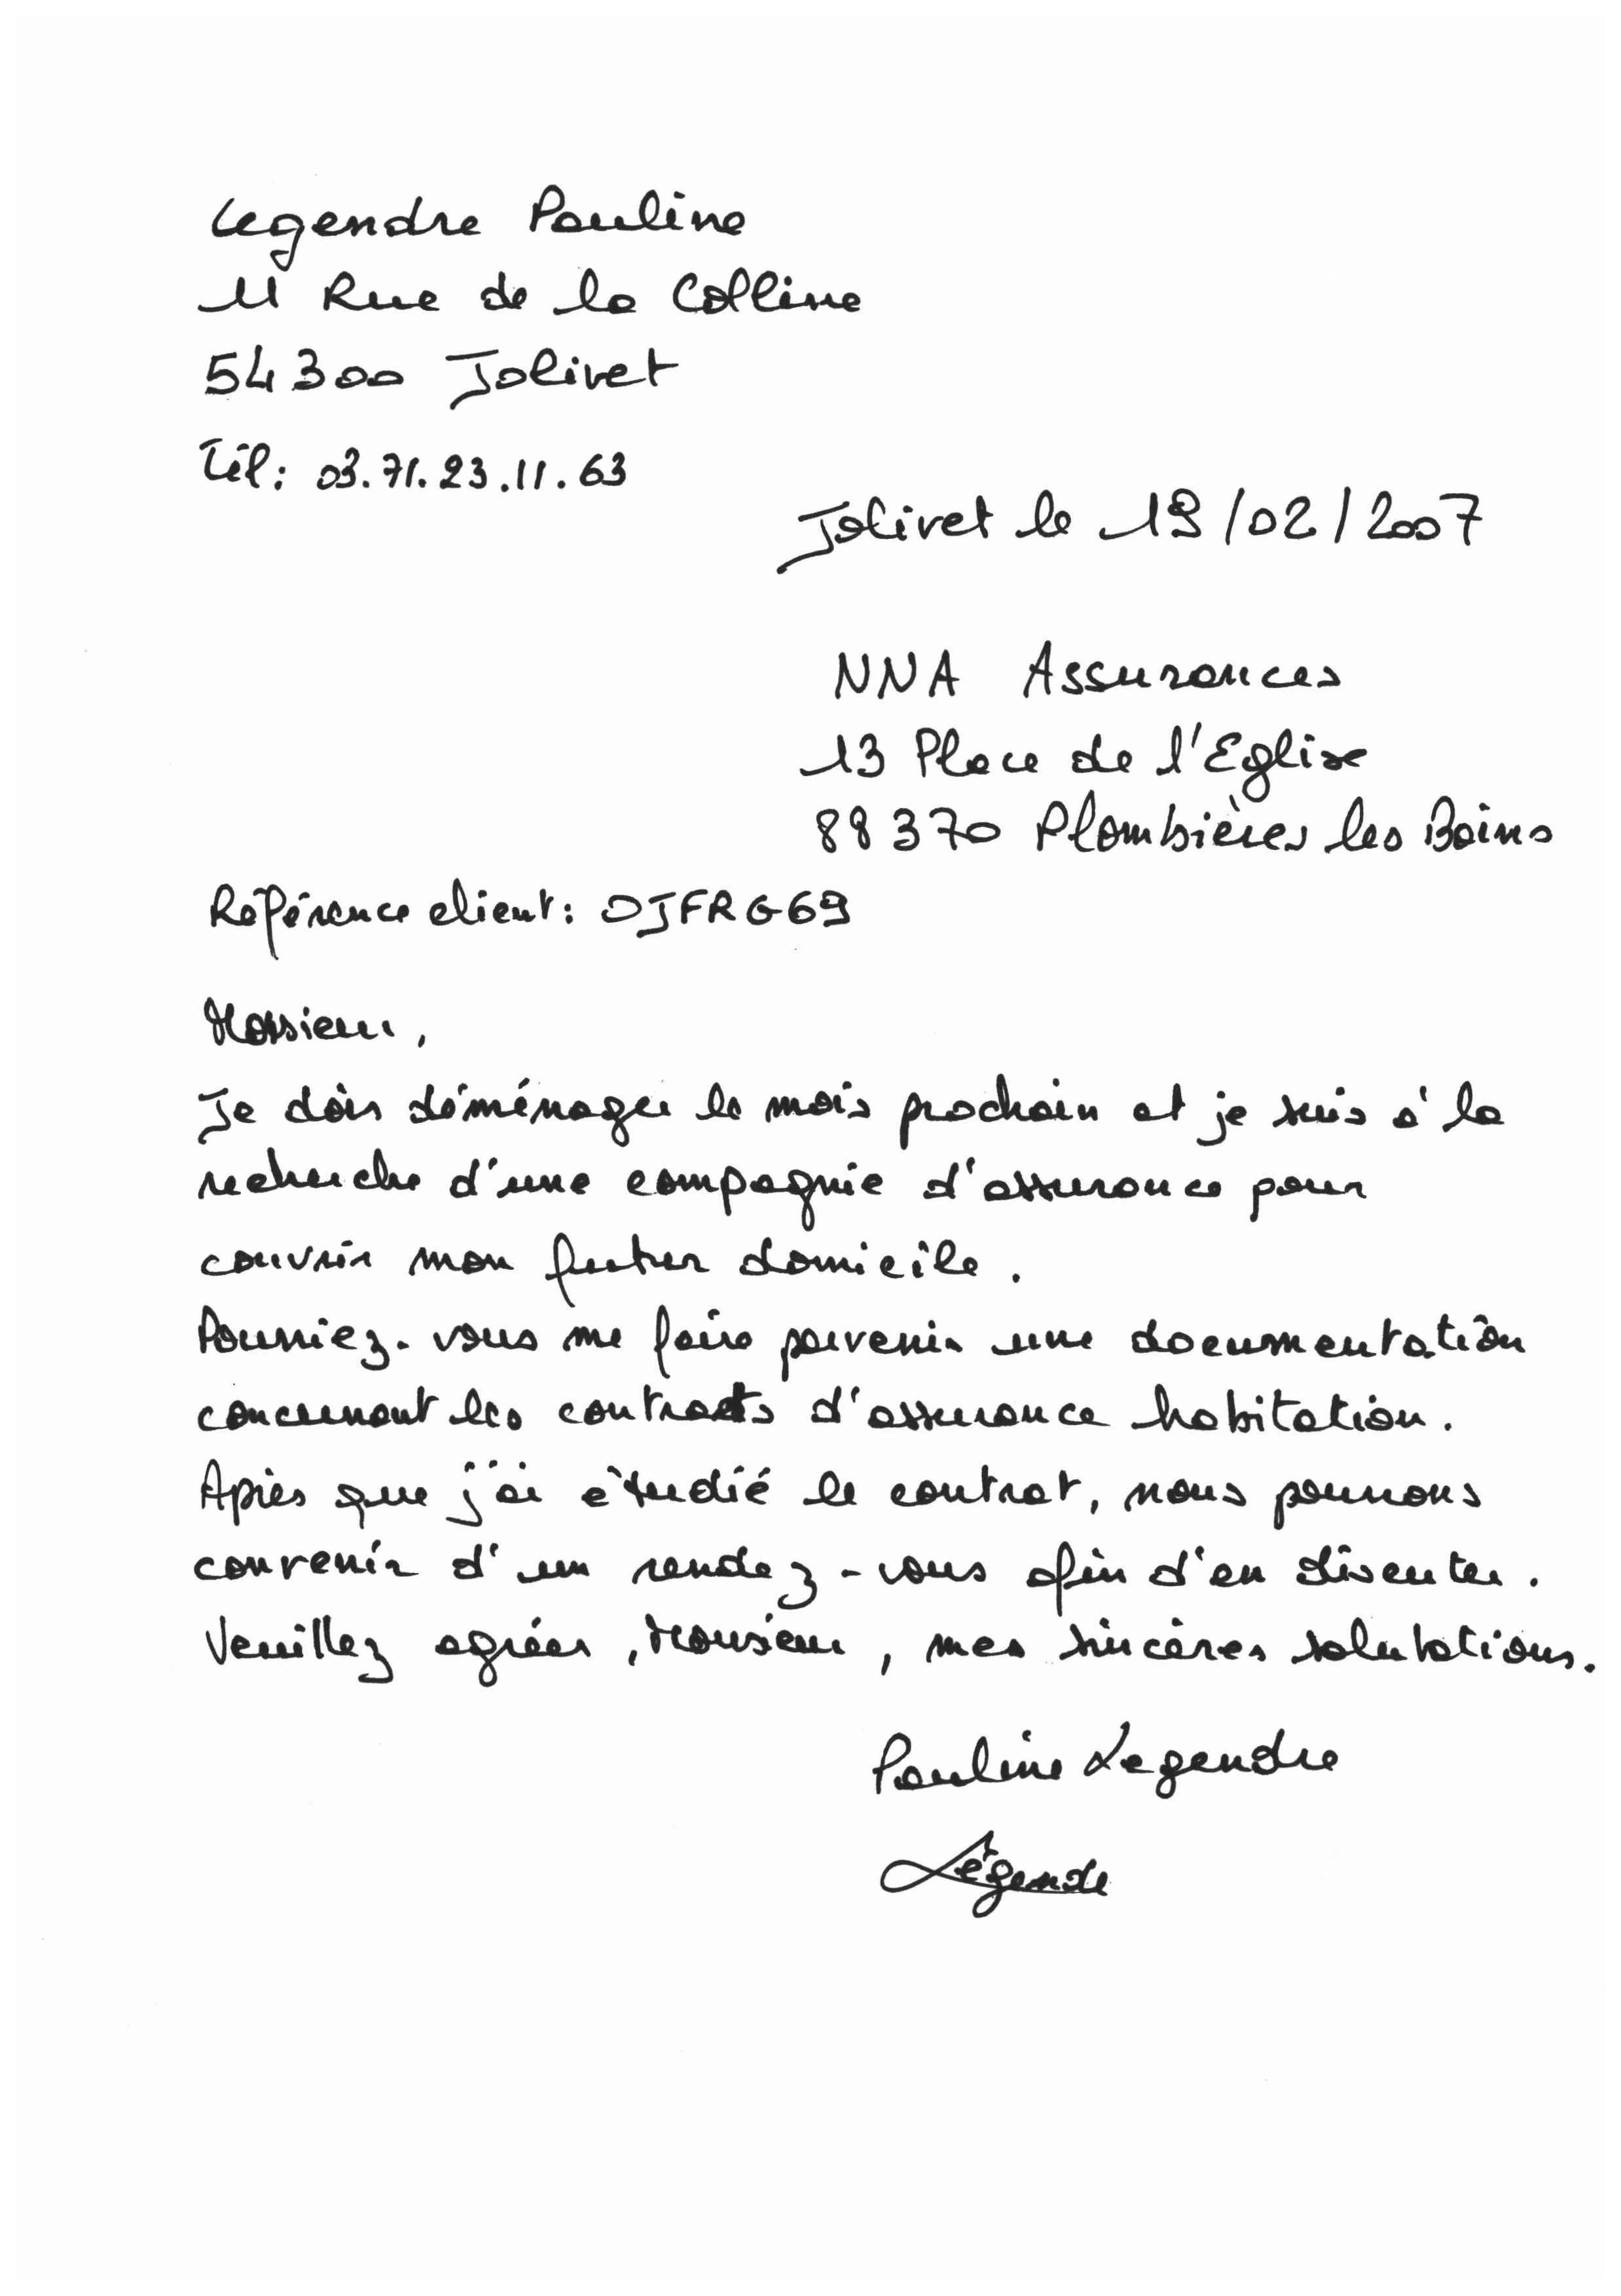 Legendre Pauline
11 Rue de la Colline
54300 Jolivet
Tél: 03.71.23.11.63
Jolivet le 19/02/2007
NNA Assurances
13 Place de l'Eglise
88370 Plombières les Bains
Référence client: OJFRG69
Monsieur,
Je dois déménager le mois prochain et je suis à la
recherche d'une compagnie d'assurance pour
couvrir mon futur domicile.
Pourriez-vous me faire parvenir une documentation
concernant les contrats d'assurance habitation.
Après que j'ai étudié le contrat, nous pourrons
convenir d'un rendez-vous afin d'en discuter.
Veuillez agréer, Monsieur, mes sincères salutations.
Pauline Legendre
Legendre